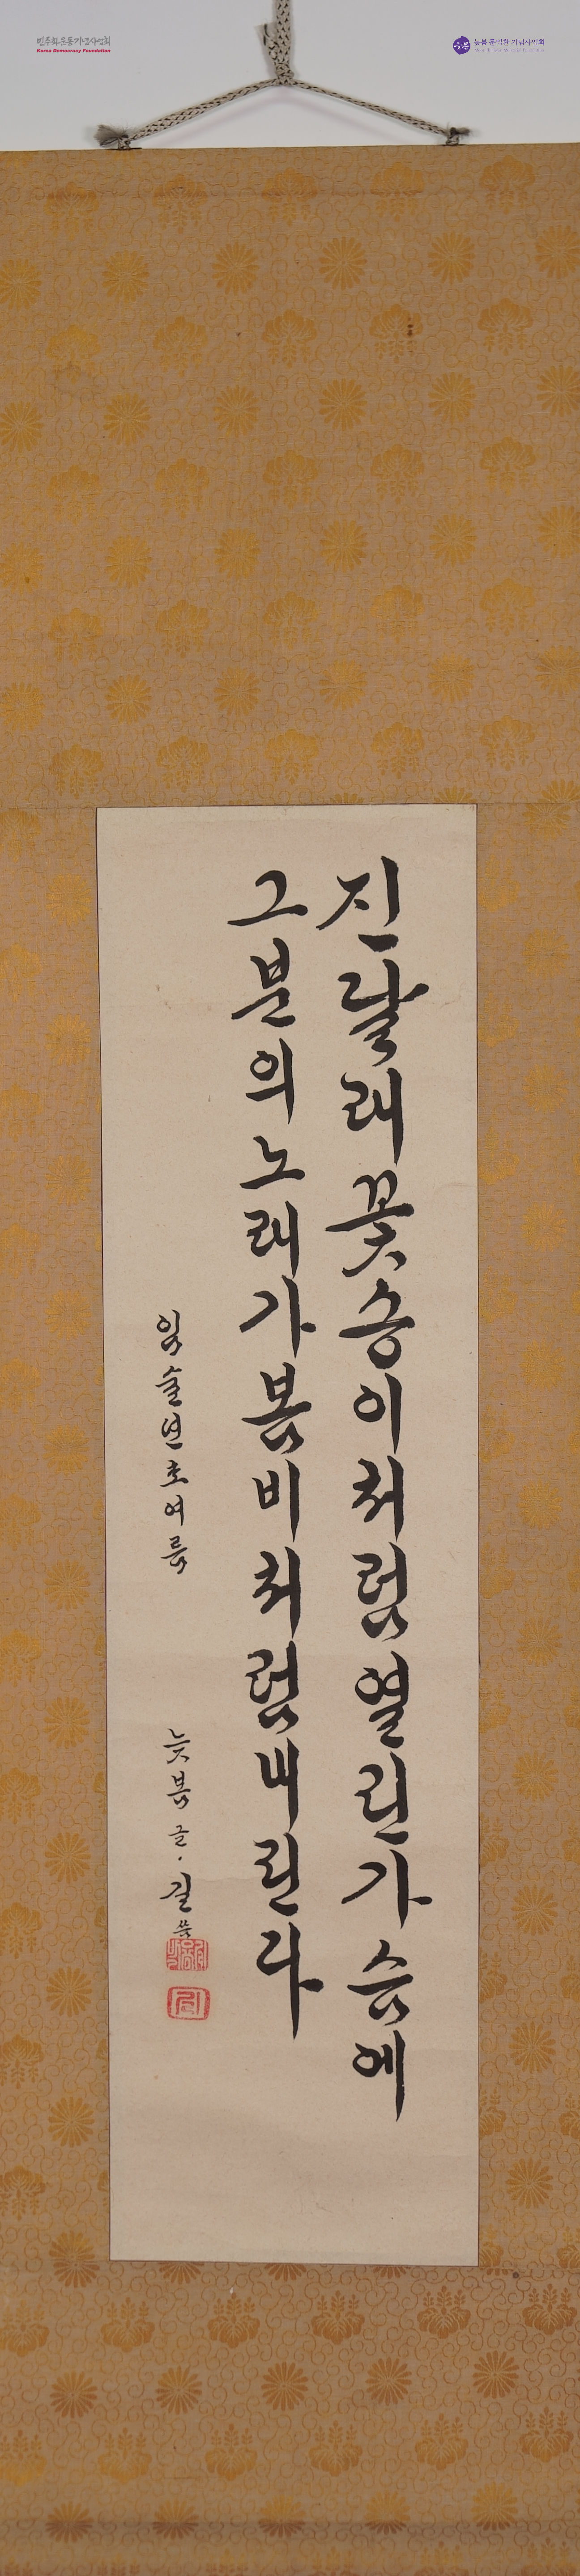 민주화운동기념사업회
Korea Democracy Foundation
늦봄 문익환 기념사업회
진달래꽃송이처럼열린가슴에
그분의노래가봄비처럼내린다
임술년초여름
늦봄 글·길